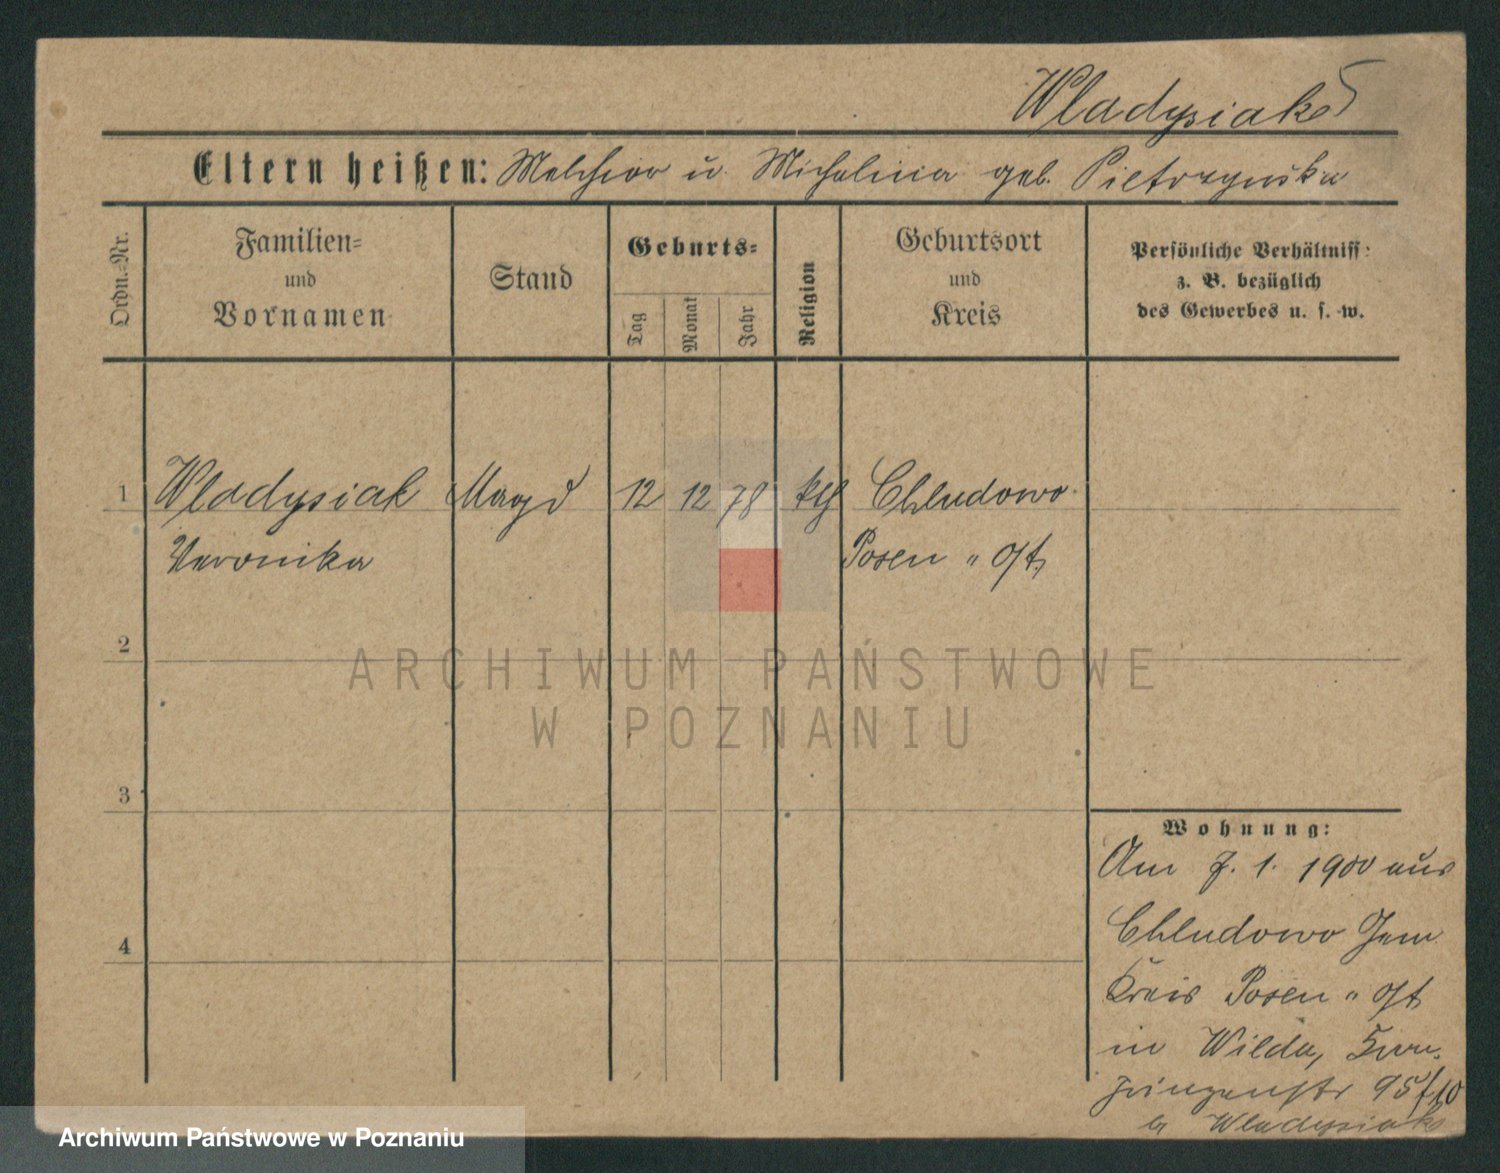 Wladysiak
Eltern heißen: Melchior u. Michalina geb. Pietrzynska
Ordn.-Nr.
Familien-
und
Vornamen
Stand
Geburts-
Tag
Monat
Jahr
Religion
Geburtsort
und
Kreis
Persönliche Verhältniss:
z. B. bezüglich
des Gewerbes u. s. w.
1 Wladysiak Magd 12 12 78 kth Chludowo
Veronika Posen " Ost
2
3
4
Wohnung:
Am 7. 1. 1900 aus
Chludowo Gem
Kreis Posen " Ost
in Wilda,
95/10
b Wladysiak
ARCHIWUM PAŃSTWOWE
W POZNANIU
Archiwum Państwowe w Poznaniu